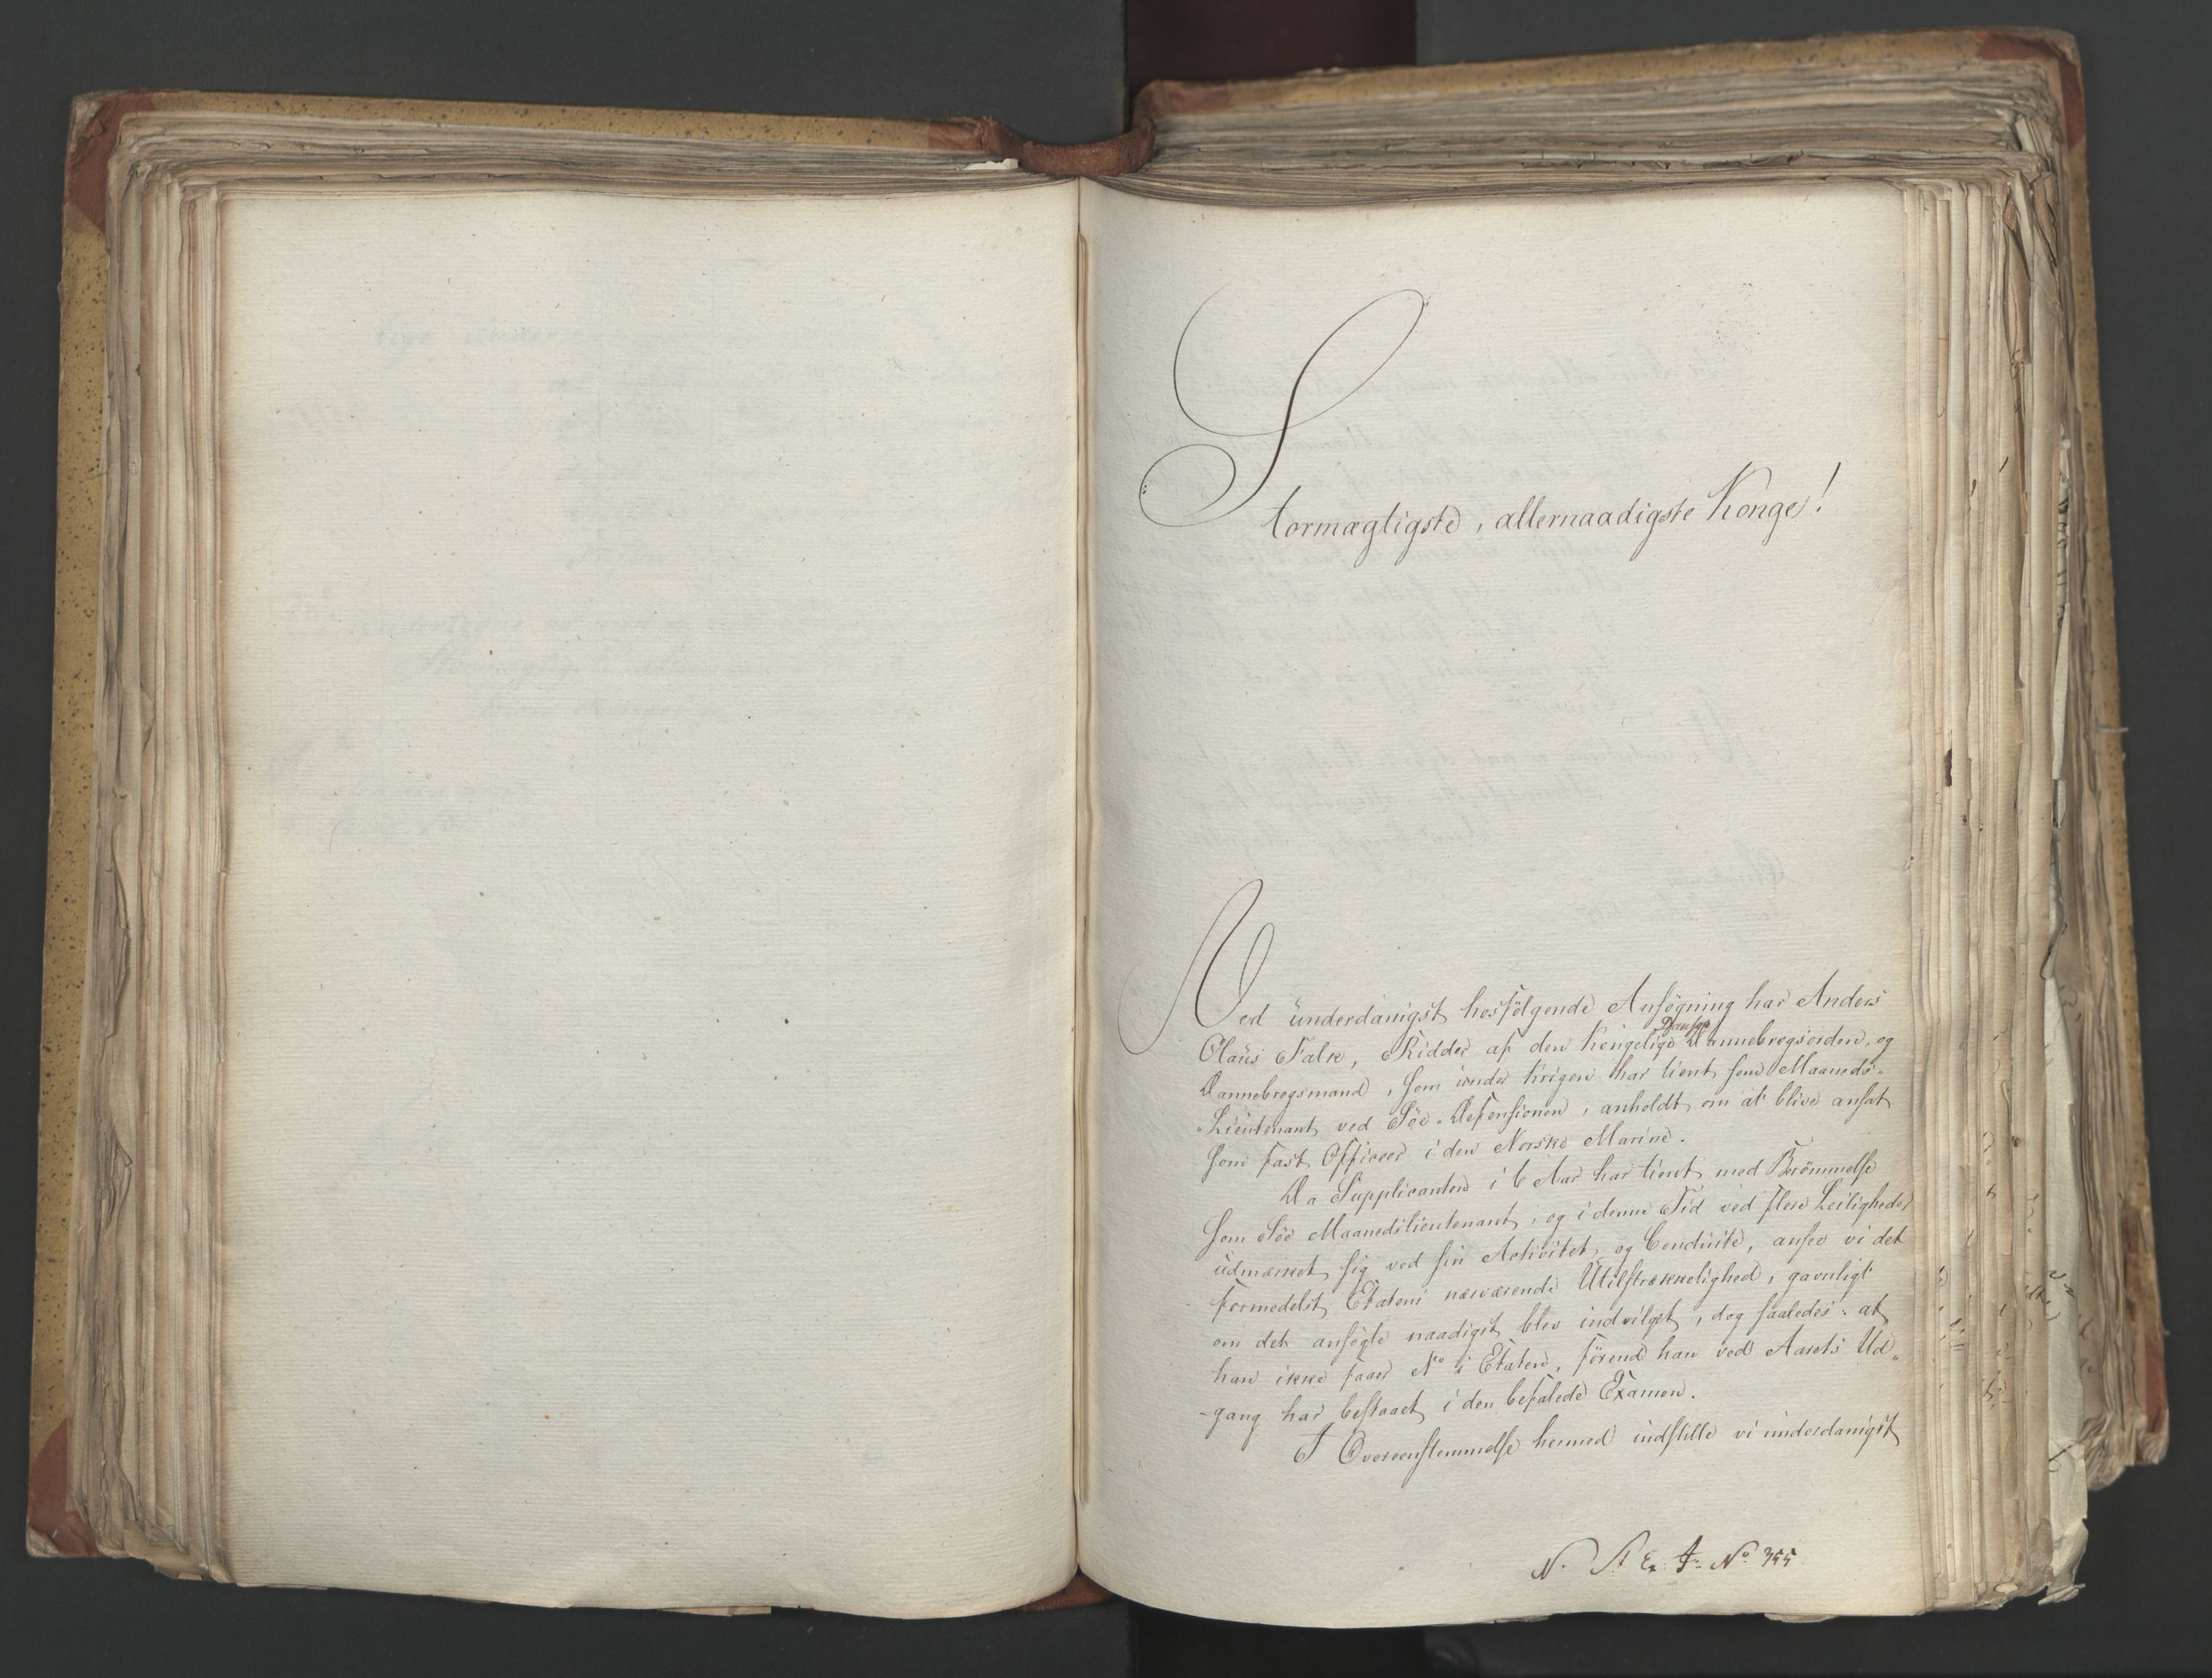 Stormægtigste, allernaadigste Konge!
Ved ünderdanigst hosfölgende Ansögning har Anders
Danske
Olaüs Falk, Ridder af den Kongelige Dannebrogsorden, og
Dannebrogsmand, som ünder Krigen har tient som Maaneds-
-Lieutenant ved Söe-Defensionen, anholdt om at blive ansat
som fast Officeer i den Norske Marine.
Da Supplicanten i 6 Aar har tient med Berömmelse
som Söe Maanedslieutenant, og i denne Tid ved flere Leiligheder
üdmærket sig ved sin Activitet og Conduite, ansee vi det
formedelst Etatens nærværende Utilstrækkelighed, gavnligt
om det ansögte naadigst blev indvilget, dog saaledes: at
han ikke faaer No i Etaten, förend han ved Aarets Ud-
-gang har bestaaet i den befalede Examen.
I Overeenstemmelse hermed indstille vi ünderdanigst
N. St. Ex. J. No 355